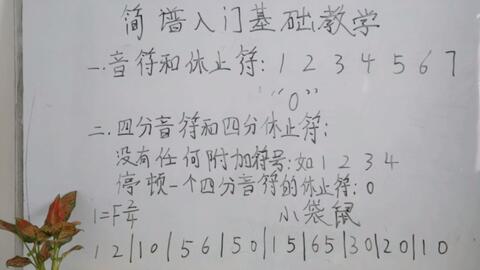 简谱入门基础教学
一.音符和休止符: 1 2 3 4 5 6 7
"0"
二.四分音符和四分休止符:
没有任何附加符号:如 1 2 3 4
停顿一个四分音符的休止符: 0
1=F 2/4 小袋鼠
1 2 | 1 0 | 5 6 | 5 0 | 1 5 | 6 5 | 3 0 | 2 0 | 1 0